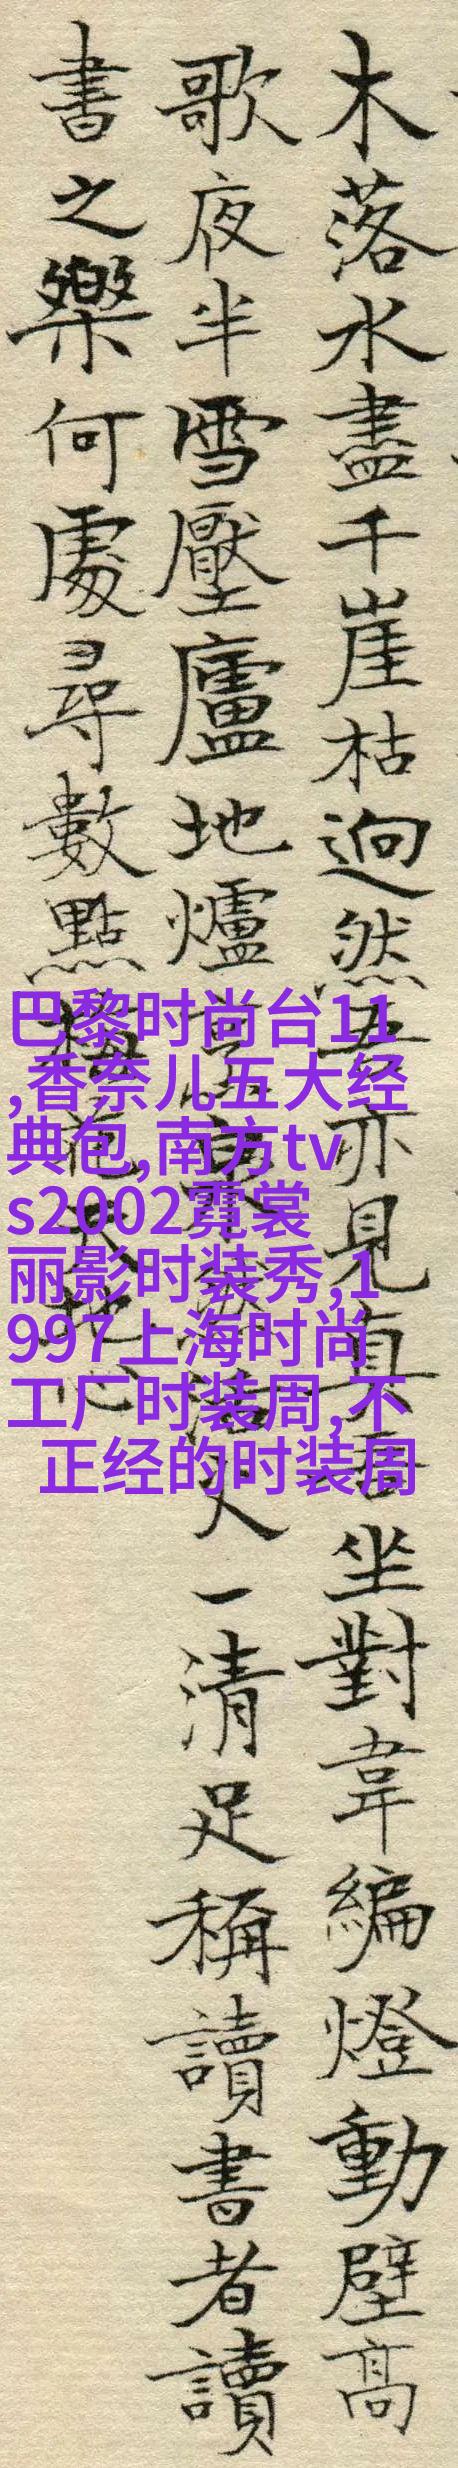 木落水盡千崖枯迥然吾亦見真吾坐對韋編燈動壁高
歌夜半雪壓廬地爐活火一清足稱讀書者讀
書之樂何處尋數點梅花天地心
巴黎时尚台11
,香奈儿五大经
典包,南方tv
s2002霓裳
丽影时装秀,1
997上海时尚
工厂时装周,不
正经的时装周